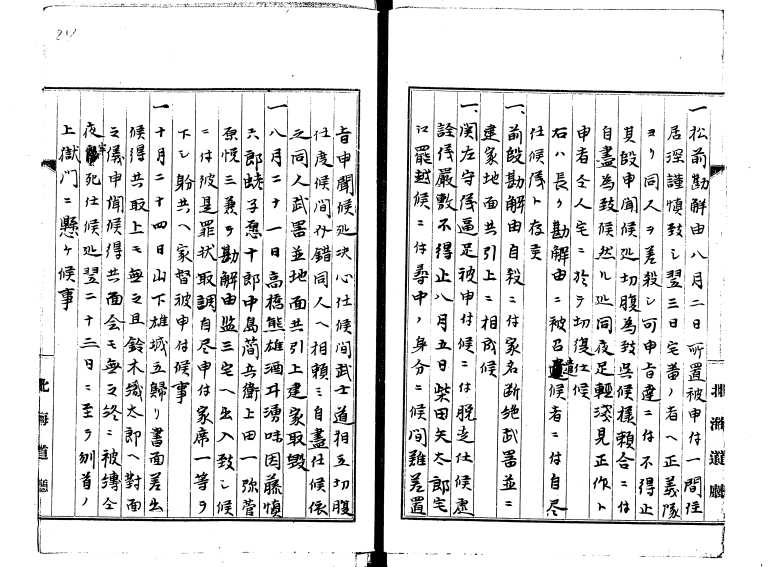 一松前勘解由八月二日所置被申付一間住
居深謹慎致シ翌三日宅番ノ者ヘ正義隊
ヨリ同人ヲ差殺シ可申旨達ニ付不得止
其段申聞候処切腹為致呉候様頼合ニ付
自盡為致候然ル処同夜足軽淺見正作ト
申者仝人宅ニ於テ切復仕候
右ハ長ク勘解由ニ被召遣候者ニ付自尽
仕候儀ト存候
一、前段勘解由自殺ニ付家名断絶武器並ニ
建家地面共引上ニ相成候
一、関左守儀逼足被申付候ニ付脱走仕候處
詮儀嚴敷不得止八月五日柴田矢太郎宅
江罷越候ニ付尋申ノ身分ニ候間難差置
旨申聞候処決心仕候間武士道相立切腹
仕度候間介錯同人ヘ相頼ミ自盡仕候依
之同人武器並地面共引上建家取毀
一八月二十一日高橋熊雄酒井湧味因藤慎
六郎蛯子悳十郎中島蘭兵衛上田一弥菅
原悦三兼テ勘解由監三宅ヘ出入致シ候
ニ付彼是罪状取調自尽申付家席一等ヲ
下シ躬共ヘ家督被申付候事
一十月二十四日山下雄城立歸リ書面差出
候得共取上モ無之且鈴木織太郎ヘ對面
之儀申聞候得共面会モ無之終ニ被縛仝
夜牢死仕候処翌二十三日ニ至リ刎首ノ
上獄門ニ懸ケ候事
北海道廳
北海道廳